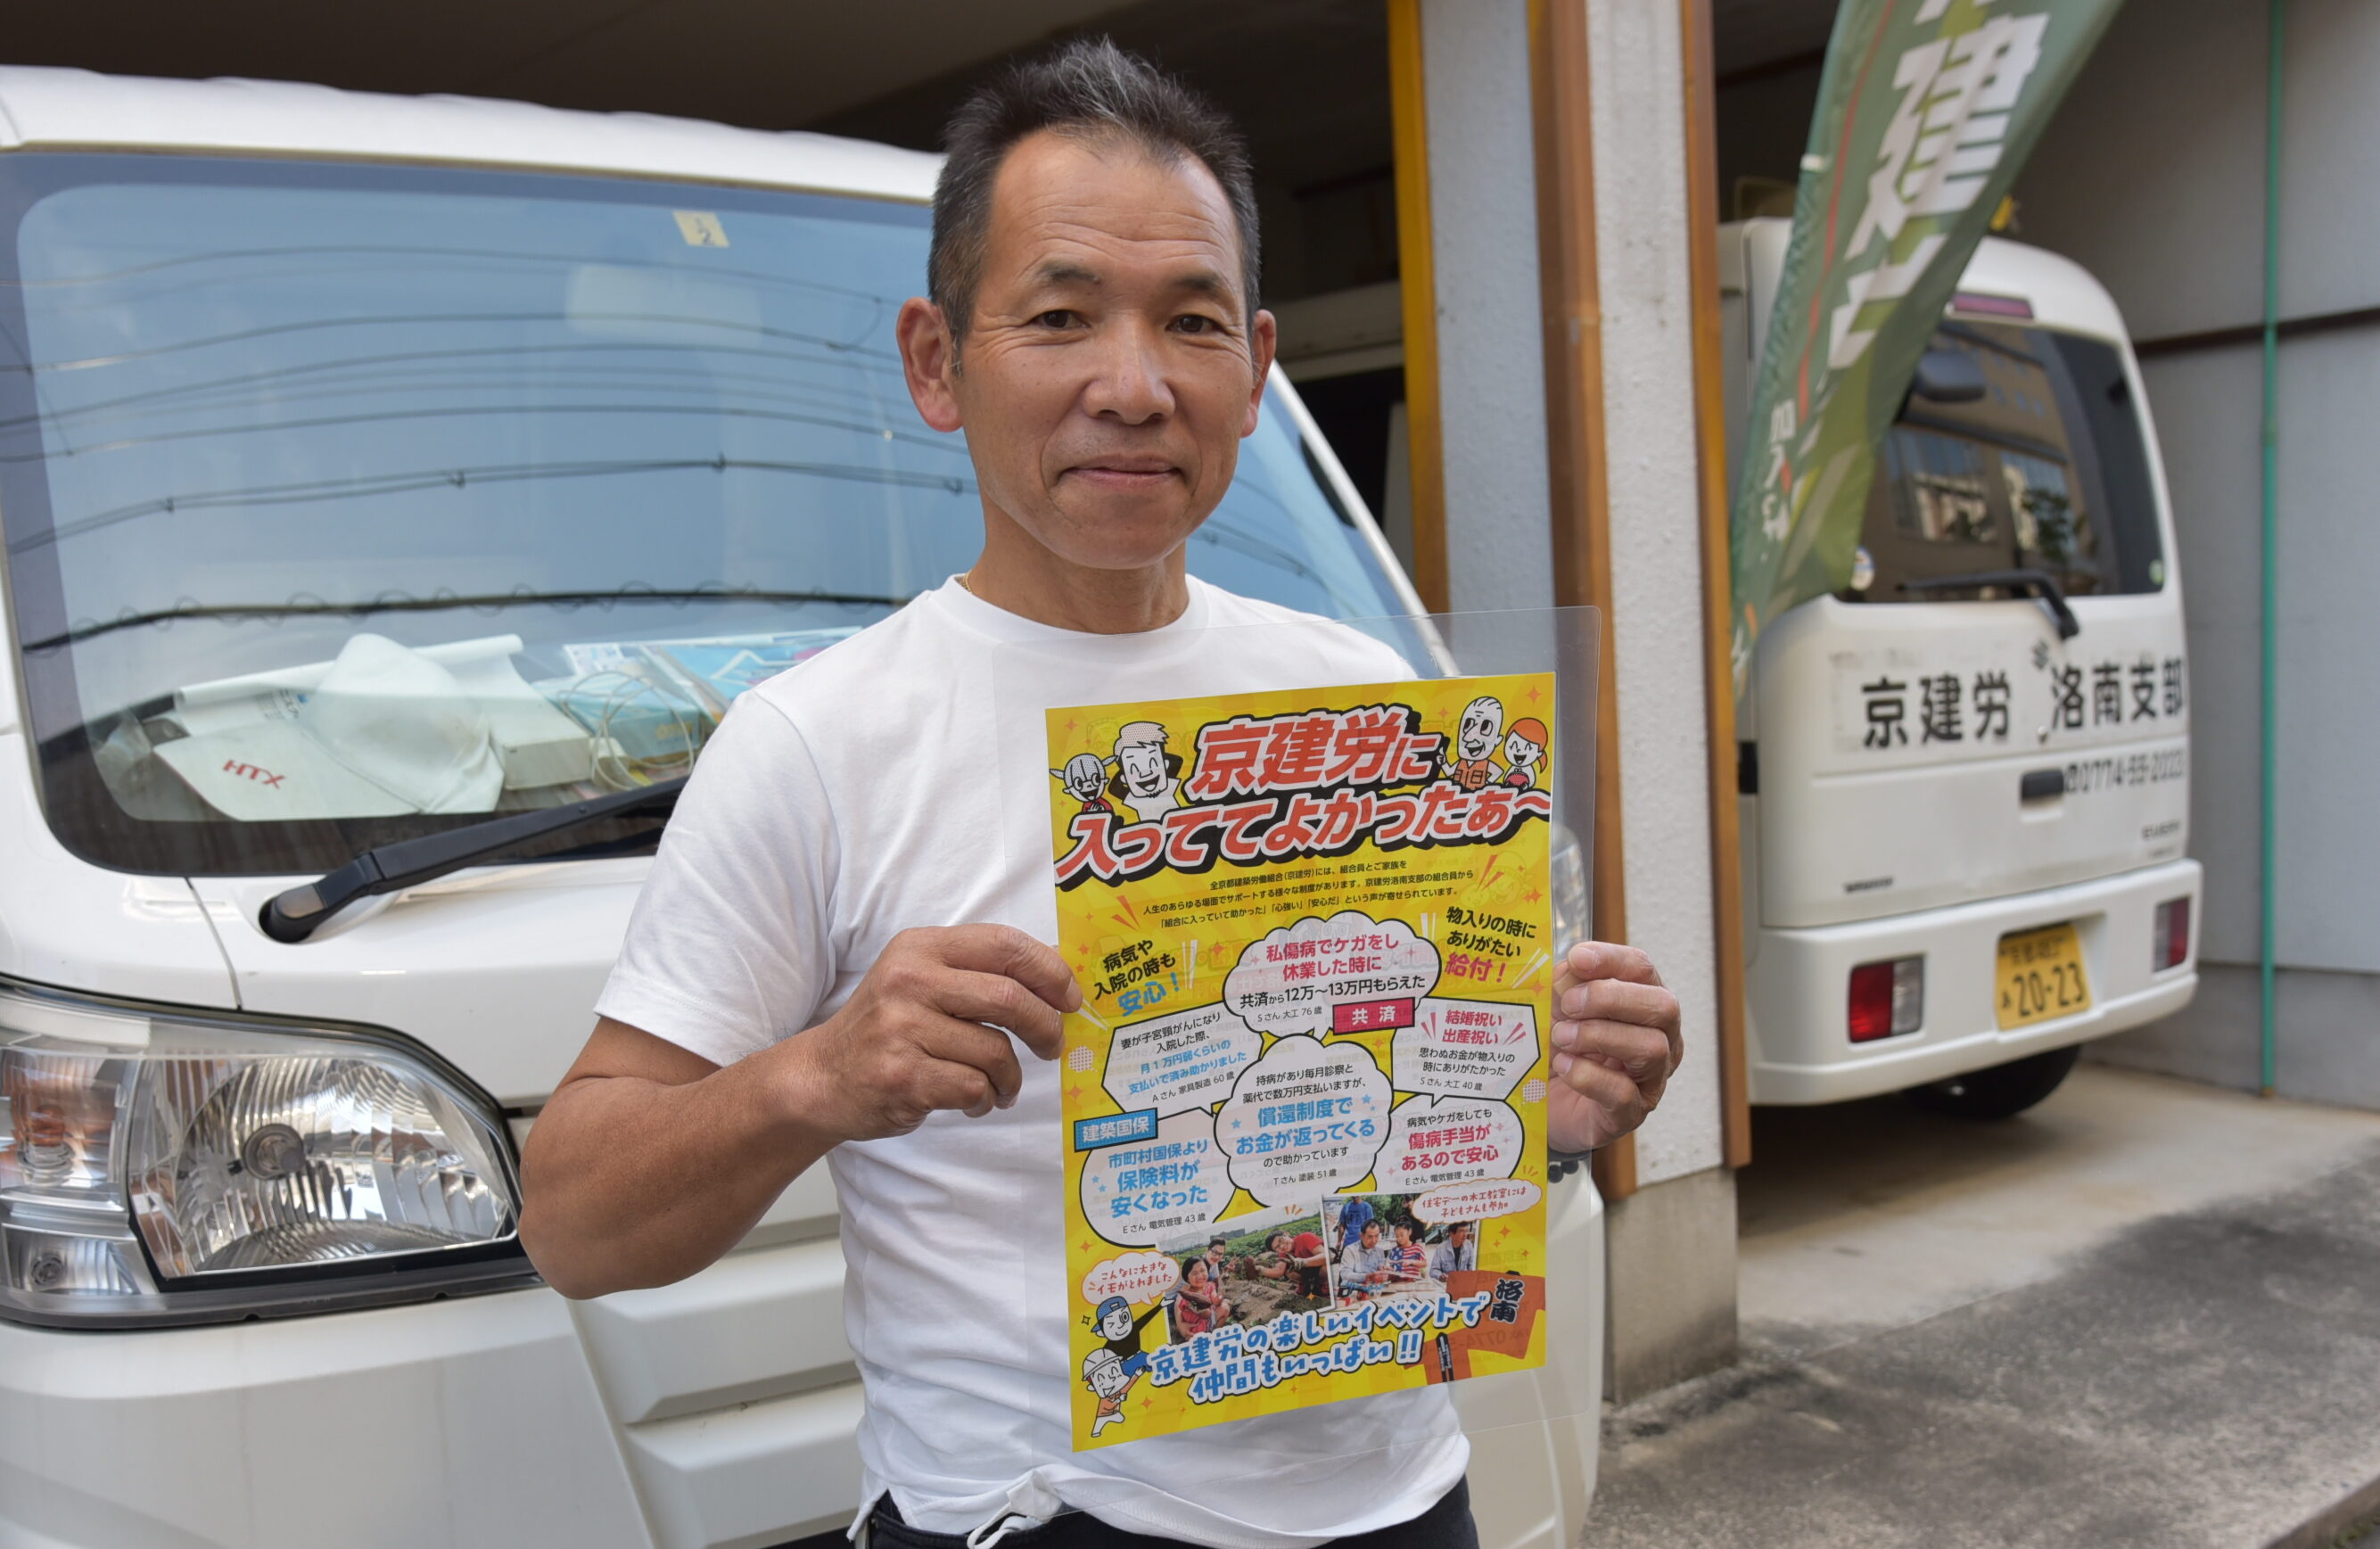 建
2
HTX
京建労 洛南支部
☎0774-55-2023
20-23
京建労に
入っててよかったぁ～
全京都建築労働組合(京建労)には、組合員とご家族を
人生のあらゆる場面でサポートする様々な制度があります。京建労洛南支部の組合員から
「組合に入っていて助かった」「心強い」「安心だ」という声が寄せられています。
病気や
入院の時も
安心！
私傷病でケガをし
休業した時に
共済から12万～13万円もらえた
Sさん 大工 76歳
共済
物入りの時に
ありがたい
給付！
妻が子宮頸がんになり
入院した際、
月1万円弱くらいの
支払いで済み助かりました
Aさん 家具製造 60歳
結婚祝い
出産祝い
思わぬお金が物入りの
時にありがたかった
Sさん 大工 40歳
持病があり毎月診察と
薬代で数万円支払いますが、
償還制度で
お金が返ってくる
ので助かっています
Tさん 塗装 51歳
建築国保
市町村国保より
保険料が
安くなった
Eさん 電気管理 43歳
病気やケガをしても
傷病手当が
あるので安心
Eさん 電気管理 43歳
住宅デーの木工教室には
子どもさんも参加
こんなに大きな
イモがとれました
洛南
京建労の楽しいイベントで
仲間もいっぱい!!